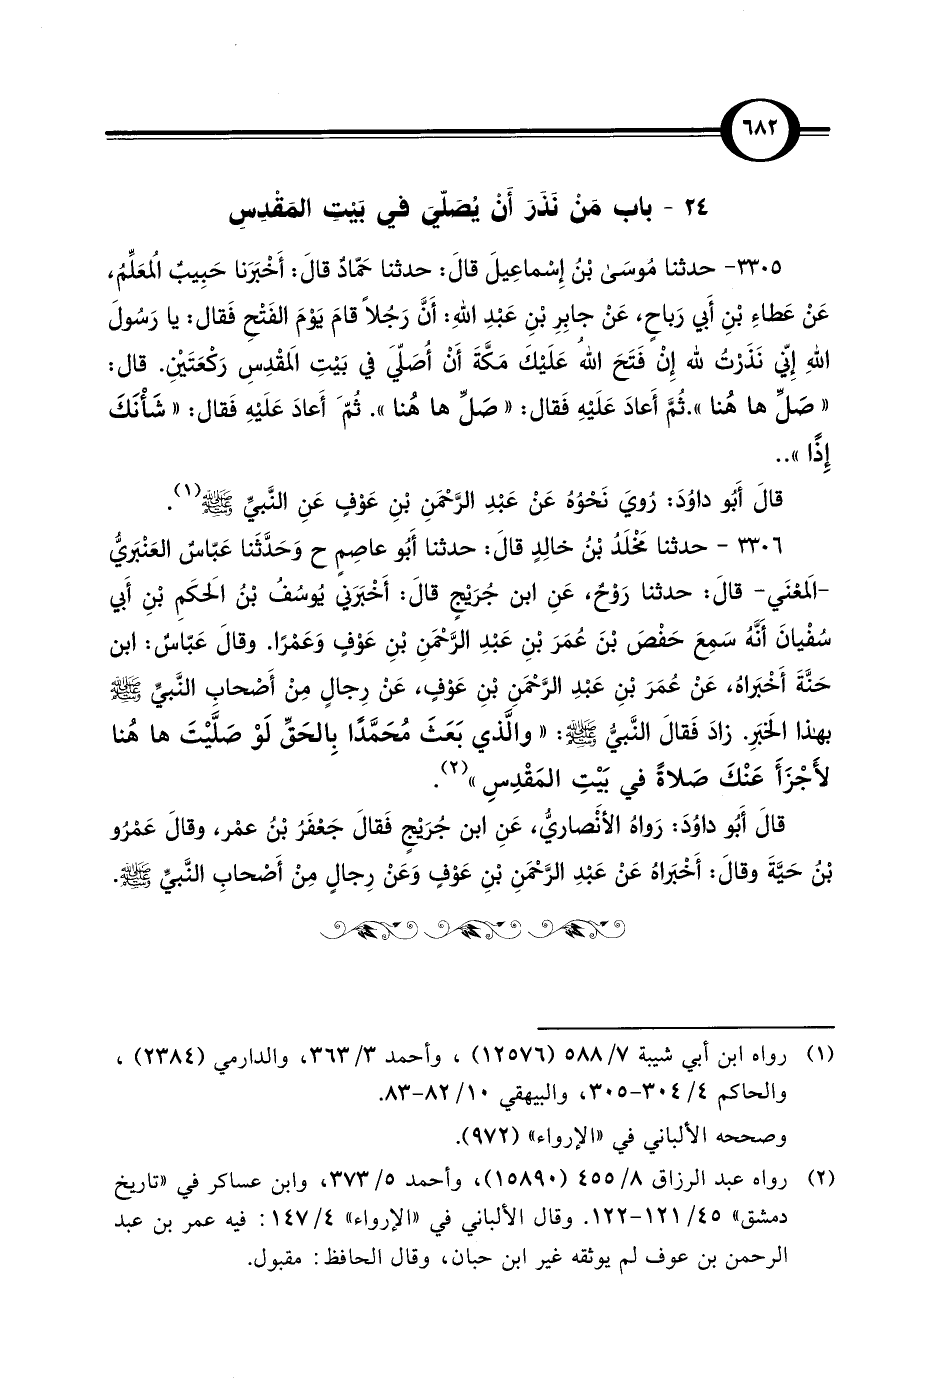 ٦٨٢
٢٤ - باب مَنْ نَذَرَ أَنْ يُصَلّيَ في بَيْتِ المَقْدِسِ
٣٣٠٥- حدثنا مُوسَىٰ بْنُ إِسْماعِيلَ قالَ: حدثنا حَمّادٌ قالَ: أَخْبَرَنا حَبِيبٌ المُعَلِّمُ،
عَنْ عَطاءِ بْنِ أَبي رَباحٍ، عَنْ جابِرِ بْنِ عَبْدِ اللهِ: أَنَّ رَجُلاً قامَ يَوْمَ الفَتْحِ فَقالَ: يا رَسُولَ
اللهِ إِنّي نَذَرْتُ لله إِنْ فَتَحَ اللهُ عَلَيْكَ مَكَّةَ أَنْ أُصَلّيَ في بَيْتِ المَقْدِسِ رَكْعَتَيْنِ. قال:
« صَلِّ ها هُنا ».ثُمَّ أَعادَ عَلَيْهِ فَقالَ: « صَلِّ ها هُنا ». ثُمَّ أَعادَ عَلَيْهِ فَقالَ: « شَأْنَكَ
إِذًا »..
قالَ أَبُو داوُدَ: رُويَ نَحْوُهُ عَنْ عَبْدِ الرَّحْمَنِ بْنِ عَوْفٍ عَنِ النَّبيِّ ﷺ(١).
٣٣٠٦ - حدثنا مَخْلَدُ بْنُ خالِدٍ قالَ: حدثنا أَبُو عاصِمٍ ح وَحَدَّثَنا عَبّاسٌ العَنْبَريُّ
-المَعْنَي- قالَ: حدثنا رَوْحٌ، عَنِ ابن جُرَيْجٍ قالَ: أَخْبَرَني يُوسُفُ بْنُ الَحكَمِ بْنِ أَبي
سُفْيانَ أَنَّهُ سَمِعَ حَفْصَ بْنَ عُمَرَ بْنِ عَبْدِ الرَّحْمَنِ بْنِ عَوْفٍ وَعَمْرًا. وقالَ عَبّاسٌ: ابن
حَنَّةَ أَخْبَراهُ، عَنْ عُمَرَ بْنِ عَبْدِ الرَّحْمَنِ بْنِ عَوْفٍ، عَنْ رِجالٍ مِنْ أَصْحابِ النَّبيِّ ﷺ
بهذا الَخبَرِ. زادَ فَقالَ النَّبيُّ ﷺ: « والَّذي بَعَثَ مُحَمَّدًا بِالحَقِّ لَوْ صَلَّيْتَ ها هُنا
لأَجْزَأَ عَنْكَ صَلاةً في بَيْتِ المَقْدِسِ »(٢).
قالَ أَبُو داوُدَ: رَواهُ الأَنْصاريُّ، عَنِ ابن جُرَيْجٍ فَقالَ جَعْفَرُ بْنُ عمْر، وقالَ عَمْرُو
بْنُ حَيَّةَ وقالَ: أَخْبَراهُ عَنْ عَبْدِ الرَّحْمَنِ بْنِ عَوْفٍ وَعَنْ رِجالٍ مِنْ أَصْحابِ النَّبيِّ ﷺ.
(١) رواه ابن أبي شيبة ٧/ ٥٨٨ (١٢٥٧٦) ، وأحمد ٣/ ٣٦٣، والدارمي (٢٣٨٤) ،
والحاكم ٤/ ٣٠٤-٣٠٥، والبيهقي ١٠/ ٨٢-٨٣.
وصححه الألباني في «الإرواء» (٩٧٢).
(٢) رواه عبد الرزاق ٨/ ٤٥٥ (١٥٨٩٠)، وأحمد ٥/ ٣٧٣، وابن عساكر في «تاريخ
دمشق» ٤٥/ ١٢١-١٢٢. وقال الألباني في «الإرواء» ٤/ ١٤٧: فيه عمر بن عبد
الرحمن بن عوف لم يوثقه غير ابن حبان، وقال الحافظ: مقبول.